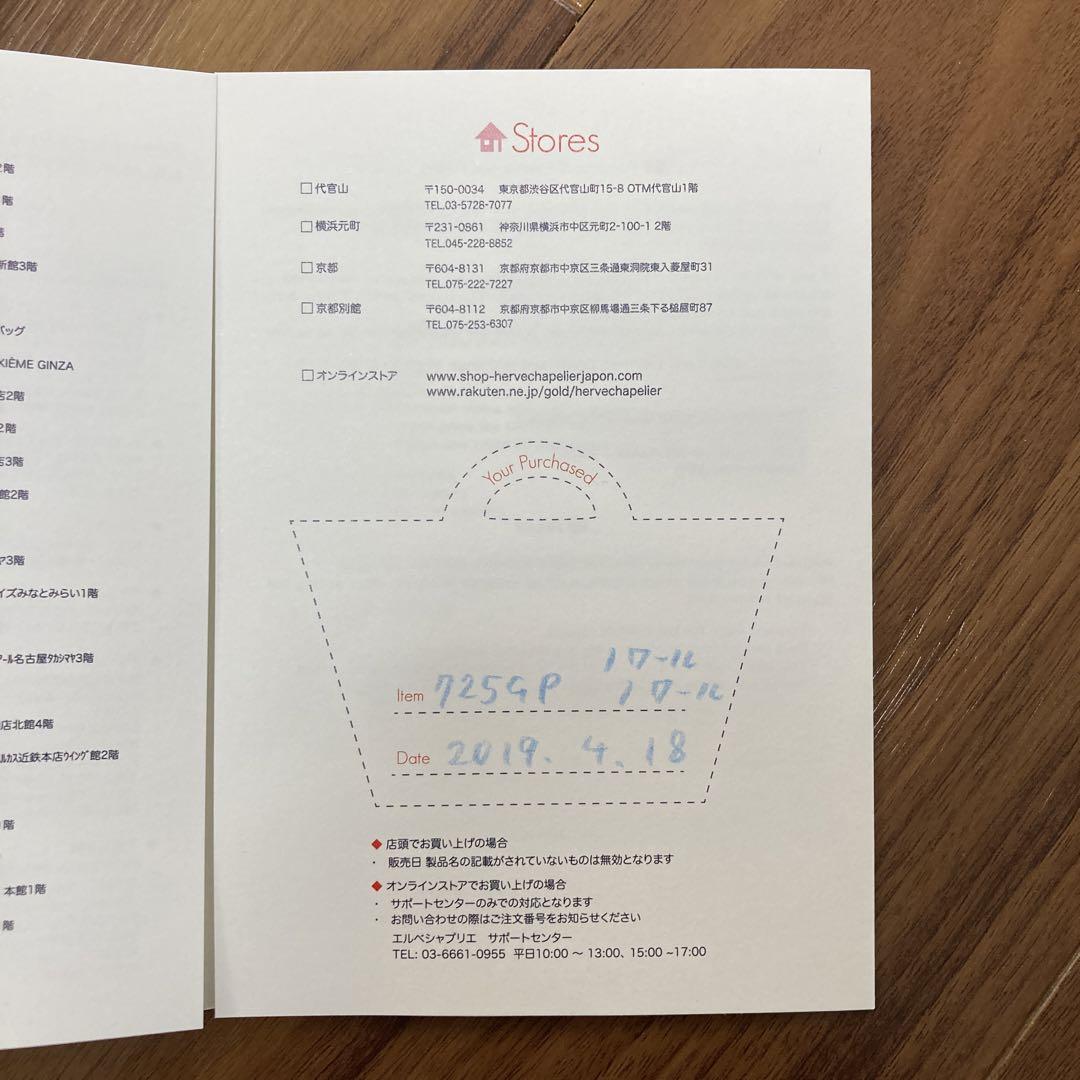 2階
階
階
新館3階
バッグ
XIÈME GINZA
店2階
2階
店3階
館2階
ヤ3階
イズみなとみらい1階
ｱｰﾙ名古屋ﾀｶｼﾏﾔ3階
店北館4階
ﾙｶｽ近鉄本店ｳｲﾝｸﾞ館2階
階
本館1階
階
Stores
□代官山 〒150-0034 東京都渋谷区代官山町15-8 OTM代官山1階
TEL.03-5728-7077
□横浜元町 〒231-0861 神奈川県横浜市中区元町2-100-1 2階
TEL.045-228-8852
□京都 〒604-8131 京都府京都市中京区三条通東洞院東入菱屋町31
TEL.075-222-7227
□京都別館 〒604-8112 京都府京都市中京区柳馬場通三条下る槌屋町87
TEL.075-253-6307
□オンラインストア www.shop-hervechapelierjapon.com
www.rakuten.ne.jp/gold/hervechapelier
Your Purchased
ノワール
Item 725GP ノワール
Date 2019. 4. 18
◆ 店頭でお買い上げの場合
・ 販売日 製品名の記載がされていないものは無効となります
◆ オンラインストアでお買い上げの場合
・ サポートセンターのみでの対応となります
・ お問い合わせの際はご注文番号をお知らせください
エルベシャプリエ サポートセンター
TEL: 03-6661-0955 平日10:00 ～ 13:00、15:00 ~17:00